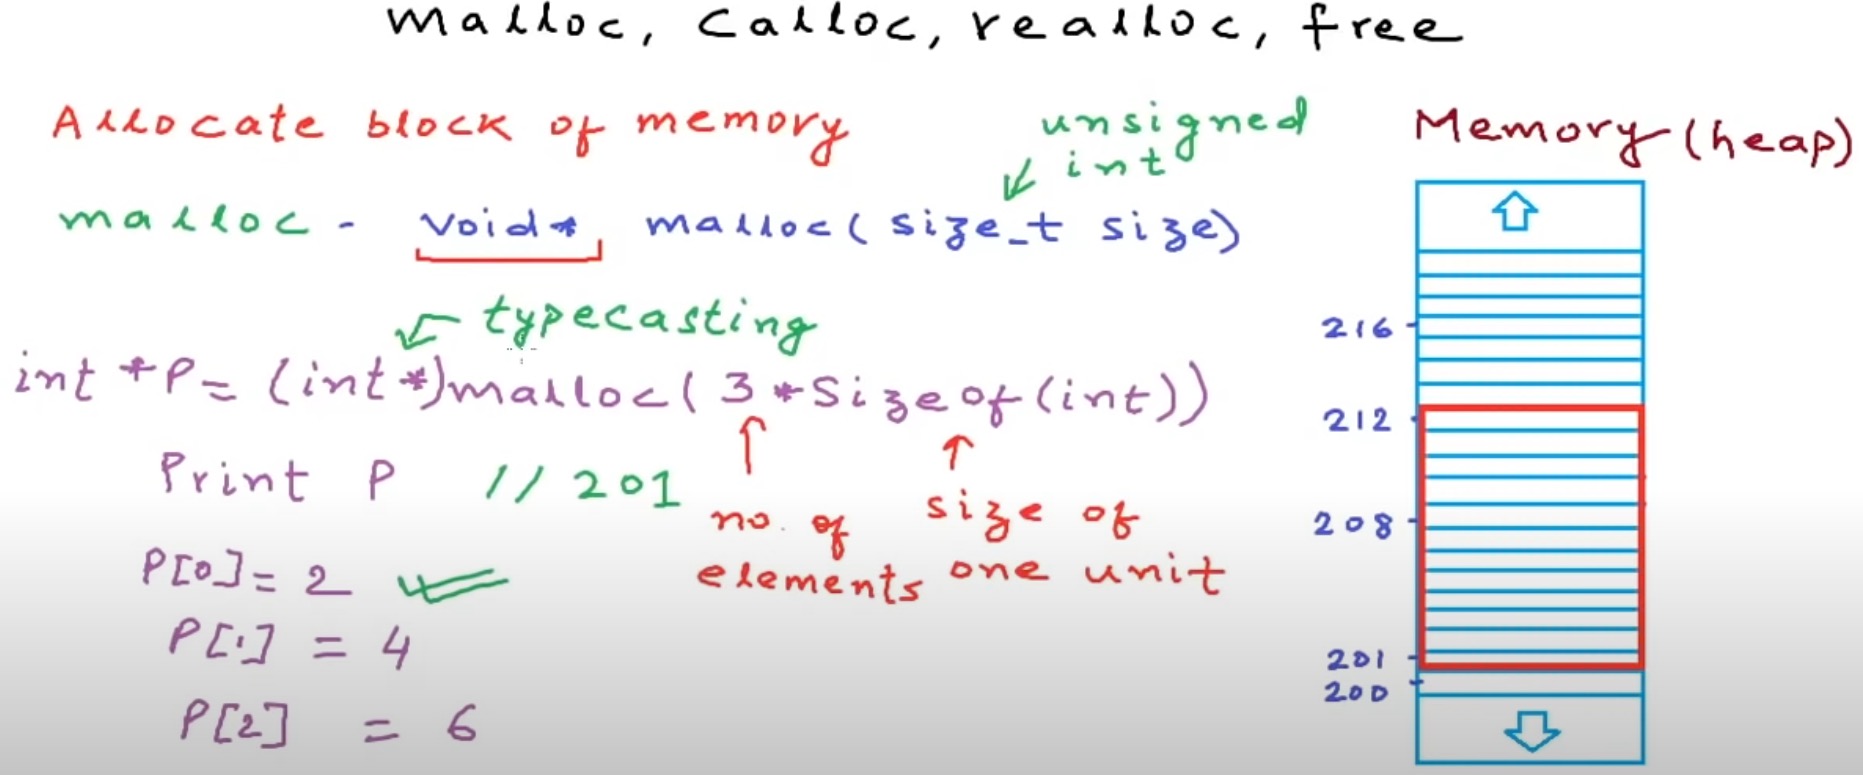 malloc, calloc, realloc, free
Allocate block of memory
unsigned
int
malloc - void* malloc(size_t size)
typecasting
int *P = (int*)malloc(3*Sizeof(int))
Print P //201
no. of
elements
size of
one unit
P[0] = 2
P[1] = 4
P[2] = 6
Memory (heap)
216
212
208
201
200